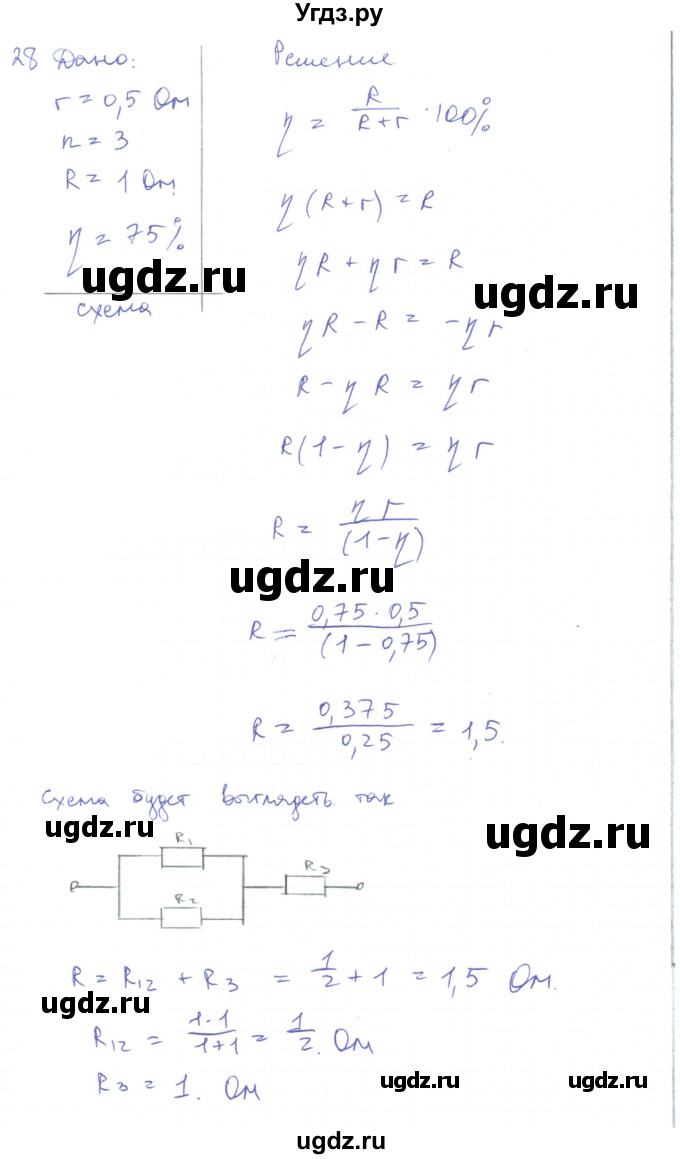 Угдз.ру
28 Дано:
r = 0,5 Ом
n = 3
R = 1 Ом.
η = 75%
ugdz.ru
схема
Решение
η = R/(R+r) · 100%
η(R+r) = R
ηR + ηr = R
ugdz.ru
ηR − R = −ηr
R − ηR = ηr
R(1−η) = ηr
R = ηr/(1−η)
ugdz.ru
R = 0,75 · 0,5/(1−0,75)
R = 0,375/0,25 = 1,5.
Схема будет выглядеть так
ugdz.ru
ugdz.ru
R1
R2
R3
R = R12 + R3 = 1/2 + 1 = 1,5 Ом.
ugdz.ru
R12 = 1·1/1+1 = 1/2. Ом
R3 = 1. Ом
ugdz.ru
ugdz.ru
ugdz.ru